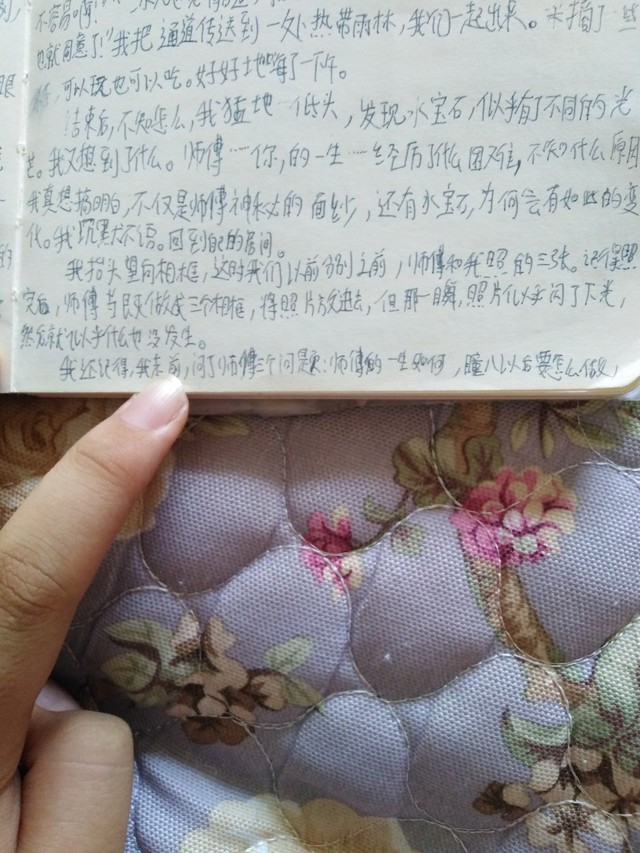 不容易啊!
也就同意了!"我把通道传送到一处热带雨林,我们一起出来。采摘了一些
可以玩也可以吃。好好地嗨了一下午。
结束后,不知怎么,我猛地一低头,发现冰宝石,似乎有了不同的光
芒。我又想到了什么。师傅……你,的一生……经历了什么困难,不知什么原因
我真想搞明白,不仅是师傅神秘的面纱,还有冰宝石,为何会有如此的变
化。我沉默不语。回到自己的房间。
我抬头望向相框,这时我们以前分别之前,师傅和我照的三张。记得照
完后,师傅与我做成三个相框,将照片放进去,但那一瞬,照片似乎闪了下光,
然后就似乎什么也没发生。
我还记得,我走前,问了师傅三个问题:师傅的一生如何,瞳八以后要怎么做,